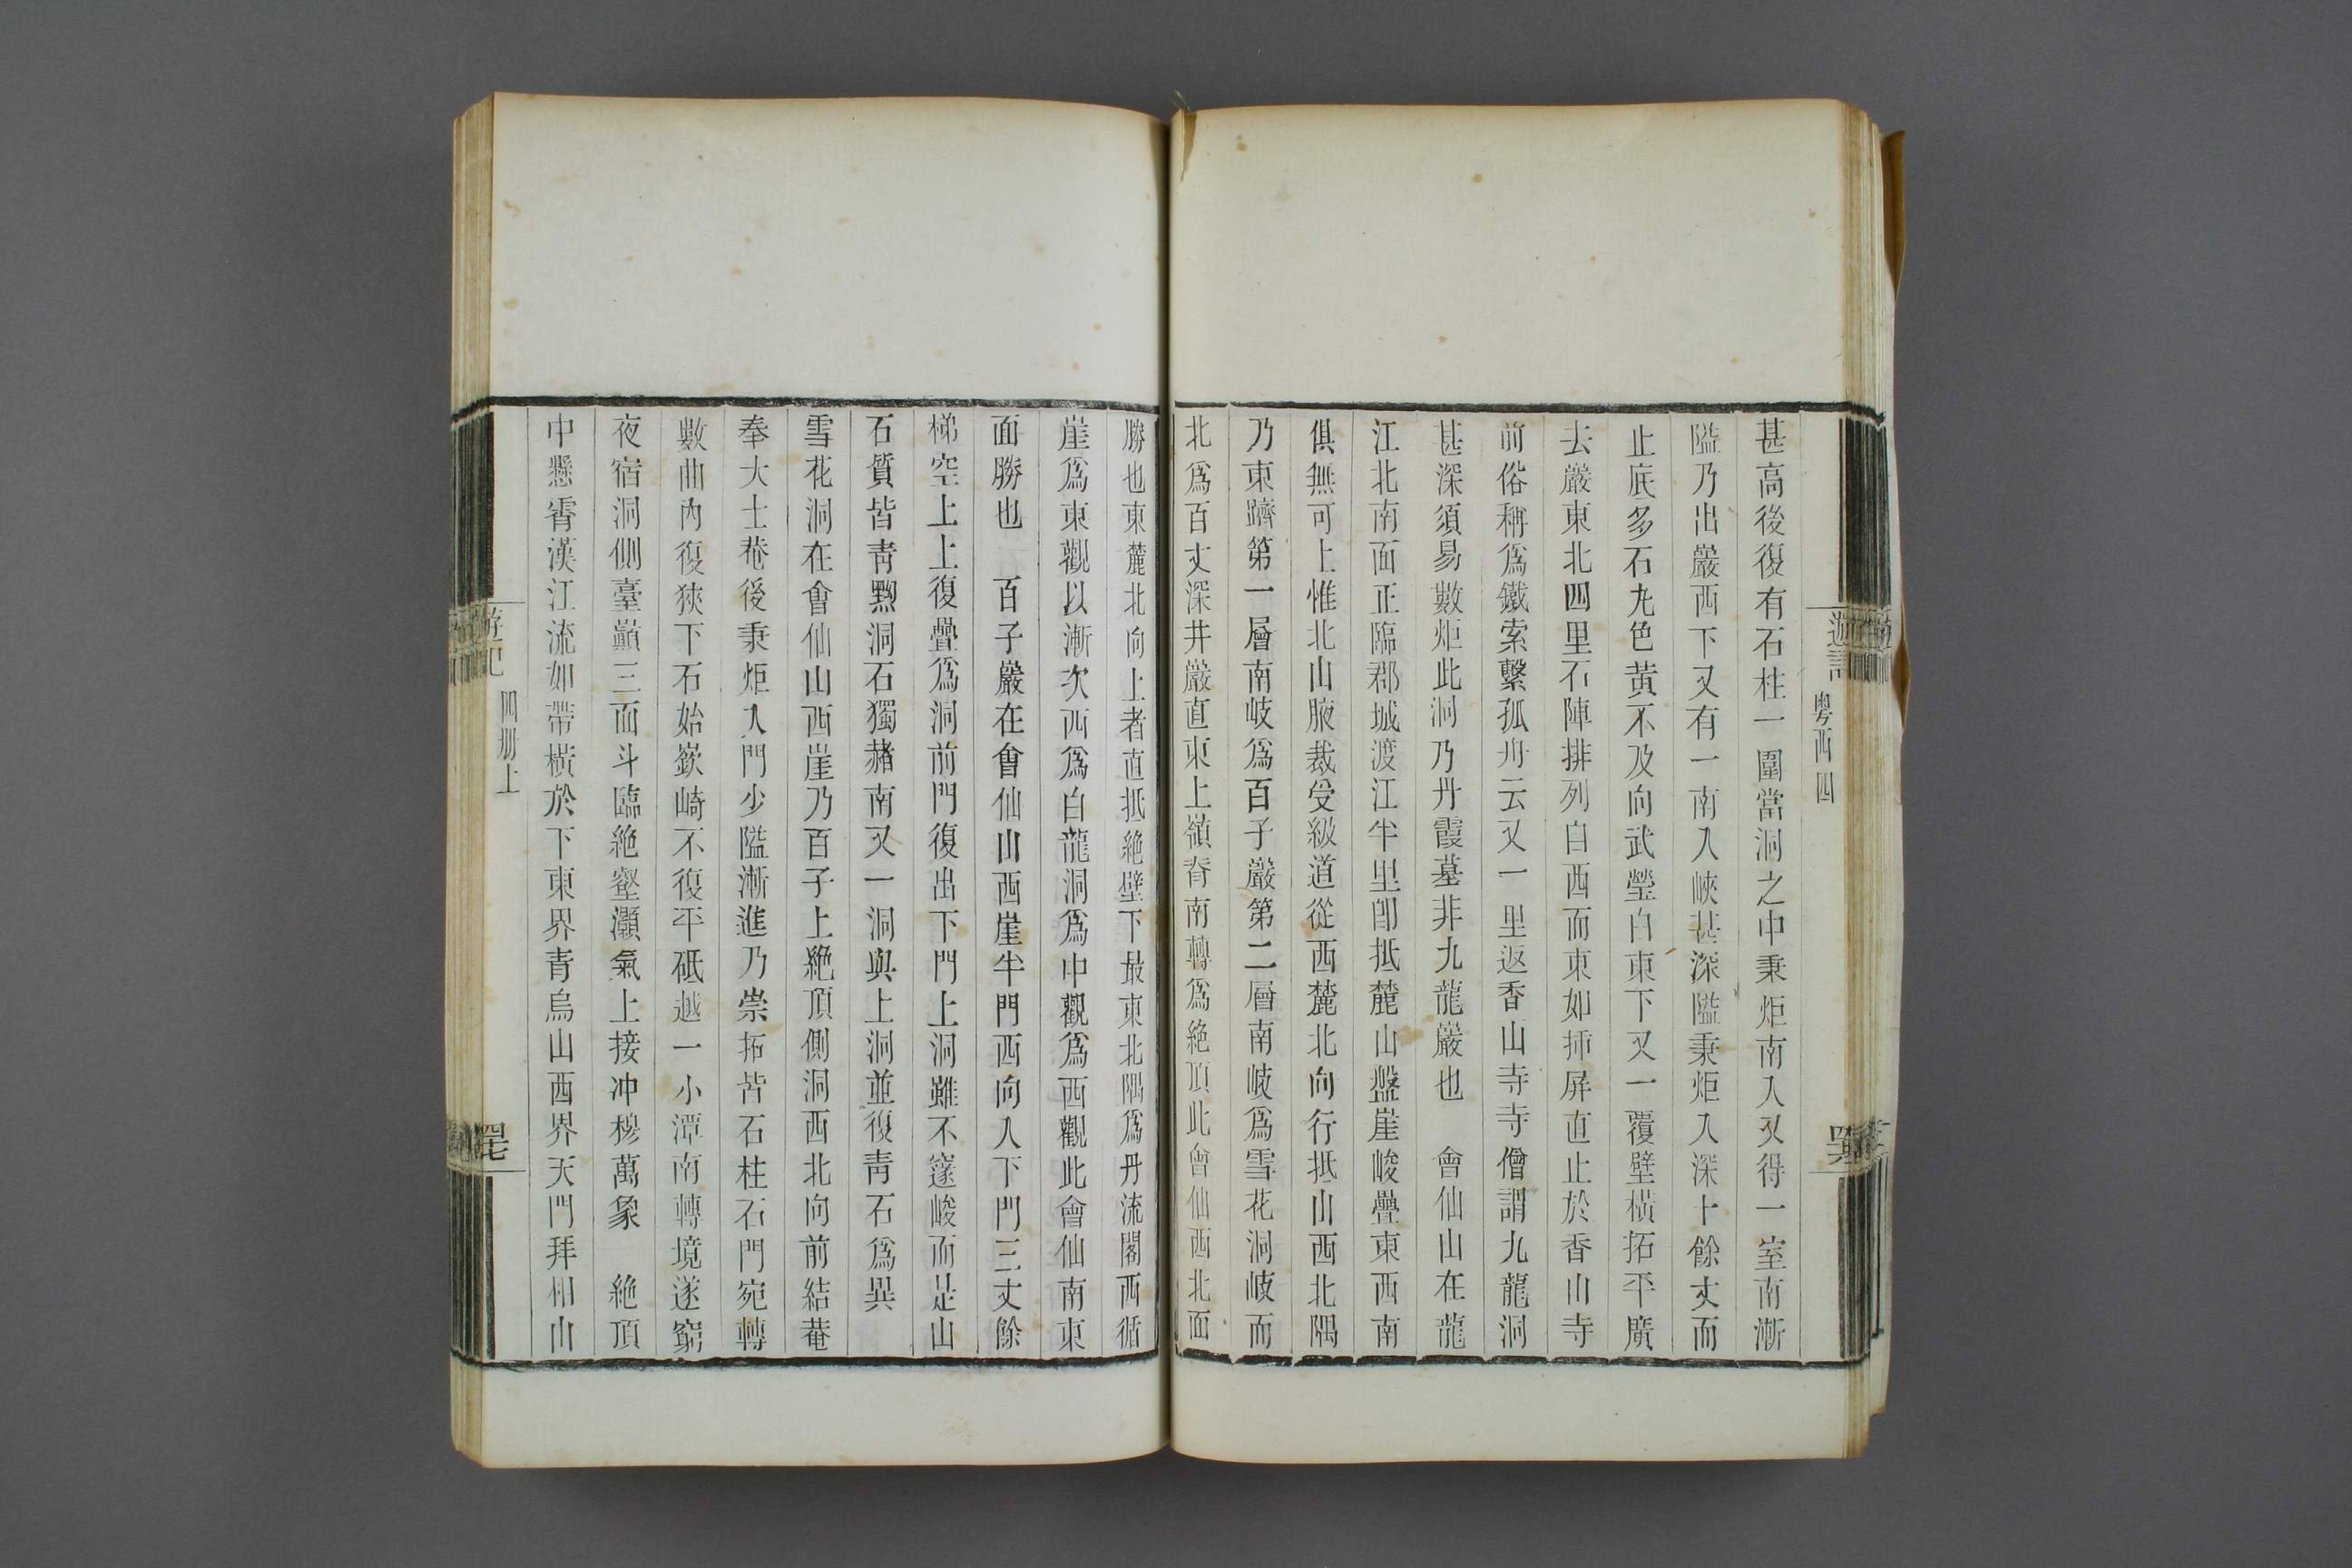 粤西四
甚高後復有石柱一圍當洞之中秉炬南入又得一室南漸
隘乃出巖西下又有一南入峽甚深隘秉炬入深十餘丈而
止底多石丸色黃不及向武瑩白東下又一覆壁橫拓平廣
去巖東北四里石陣排列自西而東如揷屏直止於香山寺
前俗稱爲鐵索繫孤舟云又一里返香山寺寺僧謂九龍洞
甚深須易數炬此洞乃丹霞墓非九龍巖也　會仙山在龍
江北南面正臨郡城渡江半里卽抵麓山盤崖峻疊東西南
俱無可上惟北山腋裁受級道從西麓北向行抵山西北隅
乃東躋第一層南岐爲百子巖第二層南岐爲雪花洞岐而
北爲百丈深井巖直東上嶺脊南轉爲絶頂此會仙西北面
勝也東麓北向上者直抵絶壁下最東北隅爲丹流閣西循
崖爲東觀以漸次西爲白龍洞爲中觀爲西觀此會仙南東
面勝也　百子巖在會仙山西崖半門西向入下門三丈餘
梯空上上復疊爲洞前門復出下門上洞雖不邃峻而是山
石質皆青黝洞石獨赭南又一洞與上洞並復青石爲異
雪花洞在會仙山西崖乃百子上絶頂側洞西北向前結菴
奉大士菴後秉炬入門少隘漸進乃崇拓皆石柱石門宛轉
數曲內復狹下石始嶔崎不復平砥越一小潭南轉境遂窮
夜宿洞側臺巔三面斗臨絶壑灝氣上接冲穆萬象　絶頂
中懸霄漢江流如帶橫於下東界青烏山西界天門拜相山
遊記
四册上